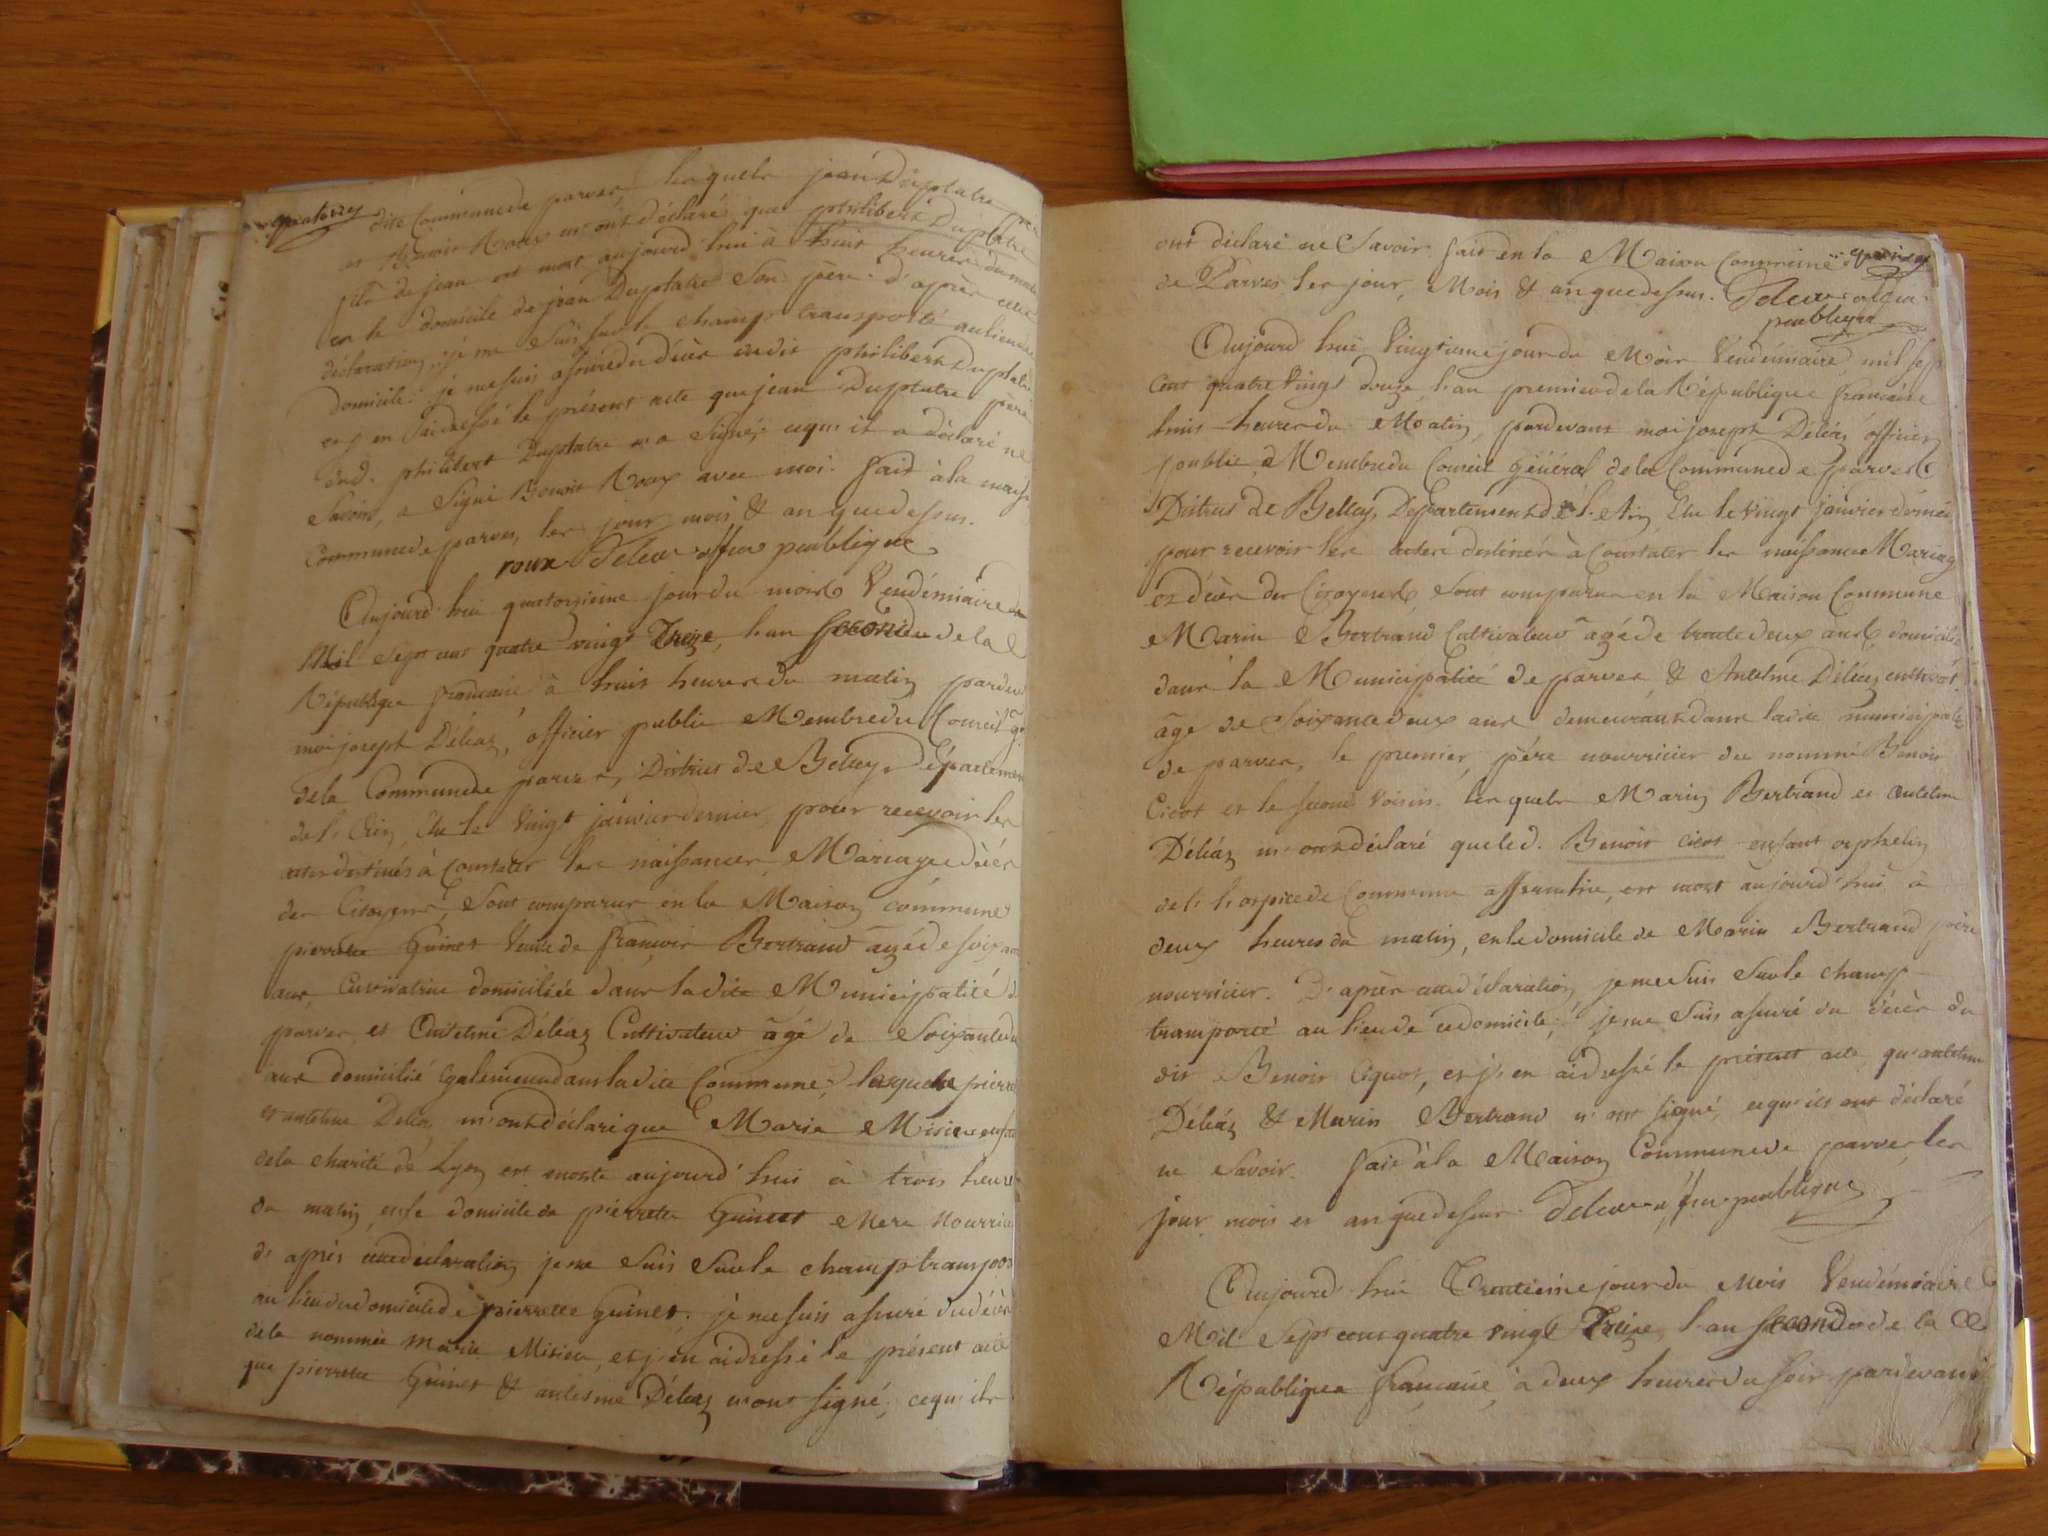 quatorze
dite Commune de parves lesquels jean Duplatre père
et Benoit Roux m'ont déclaré que philibert Duplatre
fils de jean est mort aujourd'hui à huit heures du matin
en le domicile de jean Duplatre son père. d'après cette
déclaration, je me suis sur le champ transporté au lieu de ce
domicile. je me suis assuré du décès dudit philibert Duplatre
et j'en ai dressé le présent acte que jean Duplatre père
dud. philibert Duplatre n'a signé; ce qu'il a déclaré ne
Savoir, a signé Benoit Roux avec moi. fait à la maison
Commune de parves, les jour mois & an que dessus.
roux Deleaz officier publique
Aujourd'hui quatorzieme jour du mois Vendémiaire
Mil Sept cent quatre vingt Treize, l'an second de la
République francaise à huit heures du matin pardevant
moi joseph Déléaz, officier public Membre du Conseil g.
de la Commune de parves, District de Belley, Département
de l'Ain, Elu le Vingt janvier dernier pour recevoir les
actes destinés à Constater les naissances, Mariage, décès
des Citoyens, Sont comparus en la Maison commune
pierrette Guinet Veuve de françois Bertrand agée de soixante
ans, Cultivatrice domiciliée dans la dite Municipalité de
parves, et Anteleme Déléaz Cultivateur âgé de Soixante deux
ans domicilié également dans la dite Commune, lesquels pierrette
et anteleme Deléaz m'ont déclaré que Marie Misieu enfant
de la charité de Lyon est morte aujourd'hui à trois heures
du matin, en le domicile de pierrette Guinet Mere Nourrice
d'après cette déclaration, je me suis sur le champ transporté
au lieu du domicile de pierrette Guinet; je me suis assuré du décès
de la nommée Marie Misieu, et j'en ai dressé le présent acte
que pierrette Guinet & antelme Déléaz n'ont signé; ce qu'ils
quinze
ont déclaré ne Savoir. fait en la Maison Commune
de Parves les jour, Mois & an que dessus. Deleaz officier
publique
Aujourd'hui Vingtieme jour du Mois Vendémiaire, mil sept
Cent quatre Vingt douze, l'an premier de la République française
huit heures du Matin, pardevant moi joseph Déléaz officier
public & Membre du Conseil général de la Commune de parves
District de Belley, Département de l'Ain, Elu le Vingt janvier dernier
pour recevoir les actes destinés à Constater les naissances Mariage
et décès des Citoyens, Sont comparus en la Maison Commune
Marin Bertrand Cultivateur âgé de trente deux ans domicilié
dans la Municipalité de parves & Antelme Déléaz cultivat.
âgé de Soixante deux ans demeurant dans ladite municipalité
de parves, le premier, père nourricier du nommé Benoit
Cicot et le second voisin. lesquels Marin Bertrand et Antelme
Déléaz m'ont déclaré que led. Benoit Cicot enfant orphelin
de l'hospice de Commune affranchie, est mort aujourd'hui à
deux heures du matin, en le domicile de Marin Bertrand père
nourricier. D'après cette déclaration je me suis sur le champ
transporté au lieu de ce domicile; je me suis assuré du décès du
dit Benoit Ciquot, et j'en ai dressé le présent acte qu'antelme
Déléaz & Marin Bertrand n'ont signé, ce qu'ils ont déclaré
ne Savoir. fait à la Maison Commune de parves, les
jour mois et an que dessus. Deleaz officier publique
Aujourd'hui Trentieme jour du Mois Vendémiaire
Mil Sept cent quatre vingt Treize, l'an second de la
République française, à deux heures du soir pardevant